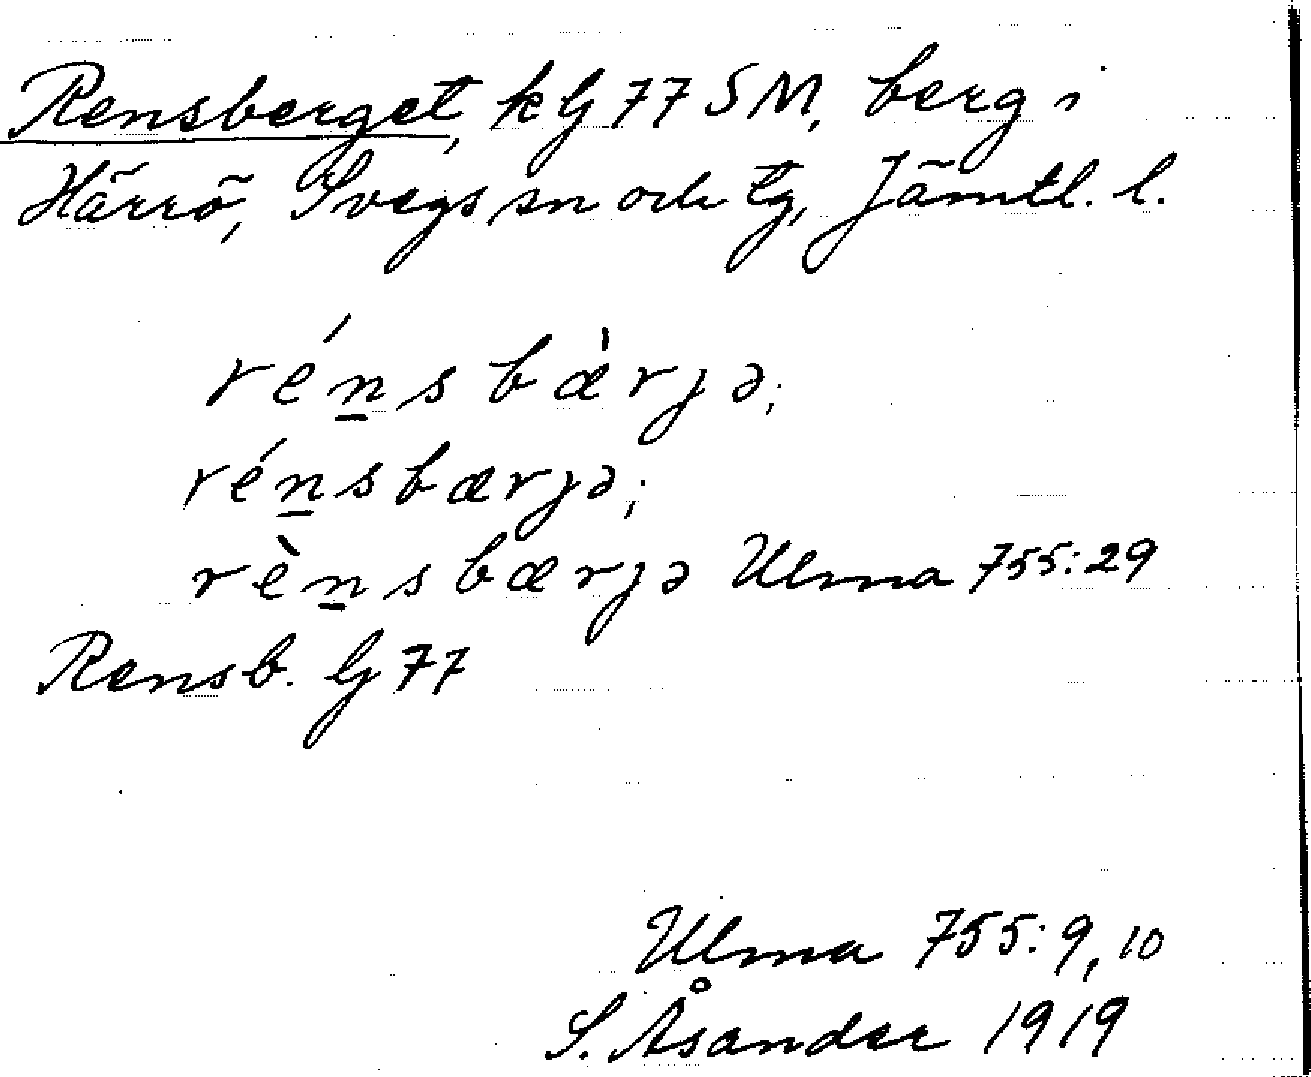 Rensberget, k G 77 SM, berg i
Härrö, Svegs sn och tg, Jämtl. l.
rén̲s bæ̀rjə;
rén̲sbærjə;
rèn̲sbærjə Ulma 755:29
Rensb. G 77
Ulma 755:9,10
S. Åsander 1919